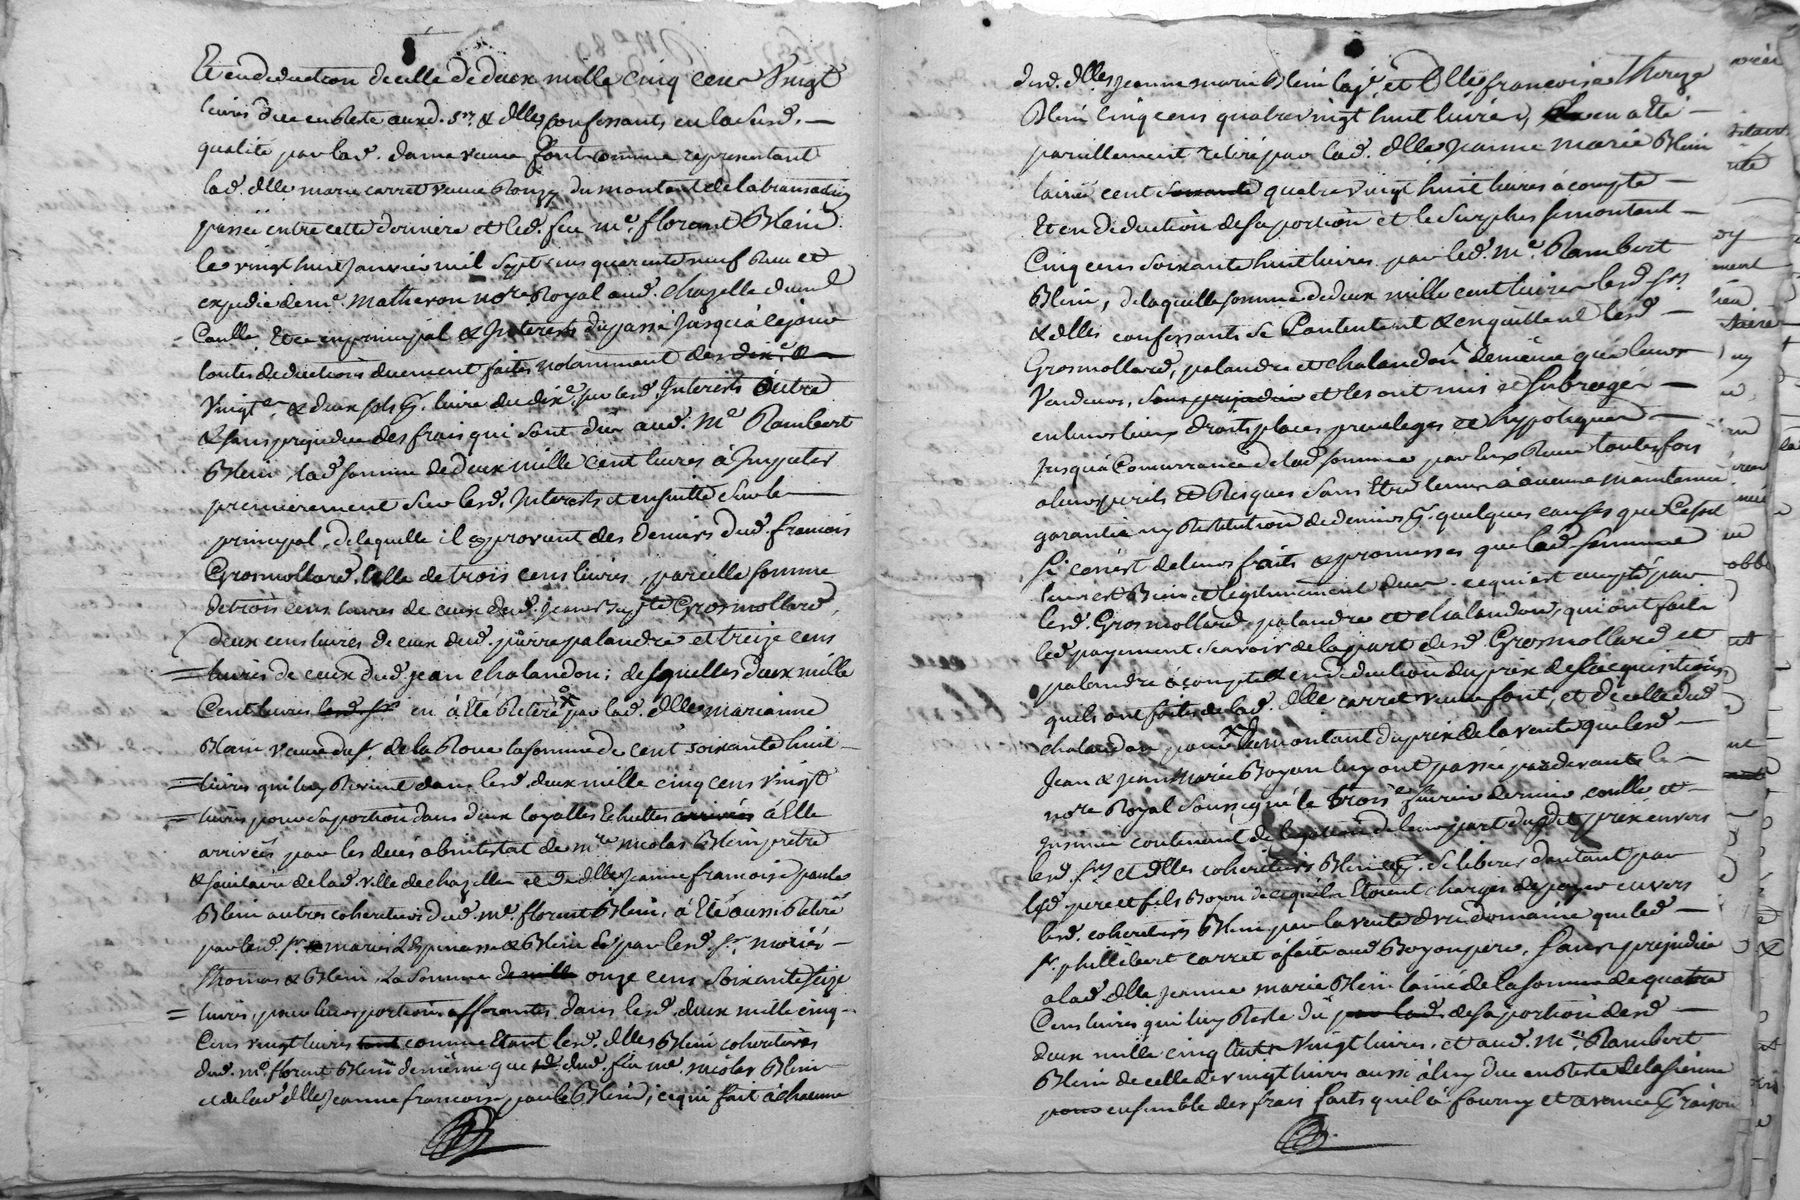 Et en deduction de celle de deux mille cinq cens vingt
livres due en reste auxd. srs & dlles confessants en la susd.
qualité par lad. dame veuve font comme representant
lad. dlle marie carret veuve du montant de la transaction
passée entre cette derniere et led. feu me. florant Blein
le vingt huit janvier mil sept cens quarante neuf Reçue et
expediée me. Matheron nore Royal aud. Chazelle duem.
Conllé, Et ce en principal & Interests du passé jusqu'à ce jour
toutes deductions duement faites notamment des dixe. &
vingte. & deux sols p. livre du dixe. sur lesd. Interests outre
& sans prejudice des frais qui sont dus aud. Me Rambert
Blein lad. somme de deux mille cent livres à Imputer
premierement sur lesd. Interests et ensuitte sur le
principal, de laquelle il provient des deniers dud. francois
Grosmollard celle de trois cens livres, pareille somme
de trois cens livres de ceux dud. Jean Bapte Grosmollard,
deux cens livres de ceux dud. pierre palandre et treize cens
livres de ceux dud. jean chalandon; desquelles deux mille
Cent livres lesd. srs en à été Retiré par lad. dlle marianne
Blein veuve du sr. de la Roue la somme de cent soixante huit
livres qui luy Revient dans lesd. deux mille cinq cens vingt
livres pour sa portion dans deux loyalles Echuttes arrivées à elle
arrivées par les deces abintestat de mre Nicolas Blein prêtre
& societaire de lad. ville de chazelle et de dlle Jeanne francoise paule
Blein autres coheritiers dud. me. florant Blein, à Eté aussi Retiré
par lesd. srs mariés Lespinasse & Blein Et par lesd. sr. mariés
Thomas & Blein La somme de mille onze cens soixante seize
livres, pour leurs portions afferantes, dans lesd. deux mille cinq
Cens vingt livres tant comme Etant lesd. dlles Blein coheritieres
dud. me. florant Blein de même que dud. feu me. nicolas Blein
et de lad. dlle Jeanne francoise paule Blein, ce qui fait à chacune
desd. dlles Jeanne marie Blein laje. et Dlle francoise Thereze
Blein cinq cens quatre vingt huit livres, en a été
pareillement retiré par lad. dlle Jeanne Marie Blein
lainée cent soixante quatre vingt huit livres à compte
Et en deduction de sa portion et le surplus se montant
Cinq cens soixante huit livres par led. Me. Rambert
Blein, de laquelle somme de deux mille cent livres lesd. srs.
& dlles confessants se Contentent & en quittent lesd.
Grosmollard, palandre et chalandon de même que leurs
Vendeurs, sans prejudice et les ont mis et subrogés
en leurs lieux droits places privileges et hypoteques
jusqu'à Concurrance de lad. somme par Eux Reçue toutesfois
à leurs perils et Risques sans Etre tenus à aucune maintenue
garantie ny Restitution de deniers p. quelques causes que ce soit
si ce n'est de leurs faits & promesses que lad. somme
leur est Bien et legitimement due. ce qui est accepté par
lesd. Grosmollard, palandre et chalandon, qui ont fait
led. payement sçavoir de la part desd. Grosmollard et
palandre à compte & en deduction du prix des acquisitions
quils ont faites de lad. dlle carret veuve font, et de celle dud
chalandon pour le montant du prix de la vente que lesd.
Jean & Jean Marie Boyon luy ont passée pardevant le
nore Royal soussigné le troise fevrier dernier conllé et
Insinué contenant delegation de leur part dud. prix envers
lesd. srs et dlles coheritiers Blein p. se liberer dautant par
lesd. pere et fils Boyon de ce qu'ils Etoient chargés de payer envers
lesd. coheritiers Blein par la vente d'un domaine que led.
sr. philibert carret à faite aud. Boyon pere. sans prejudice
à lad. dlle Jeanne marie Blein lainée de la somme de quatre
Cens livres qui luy Reste dû par lad. de sa portion desd.
deux mille cinq Cents vingt livres. et aud. me. Rambert
Blein de celle de vingt livres aussi à luy due en reste de la sienne
pour ensemble des frais faits qu'il à fourny et avancé p. raison